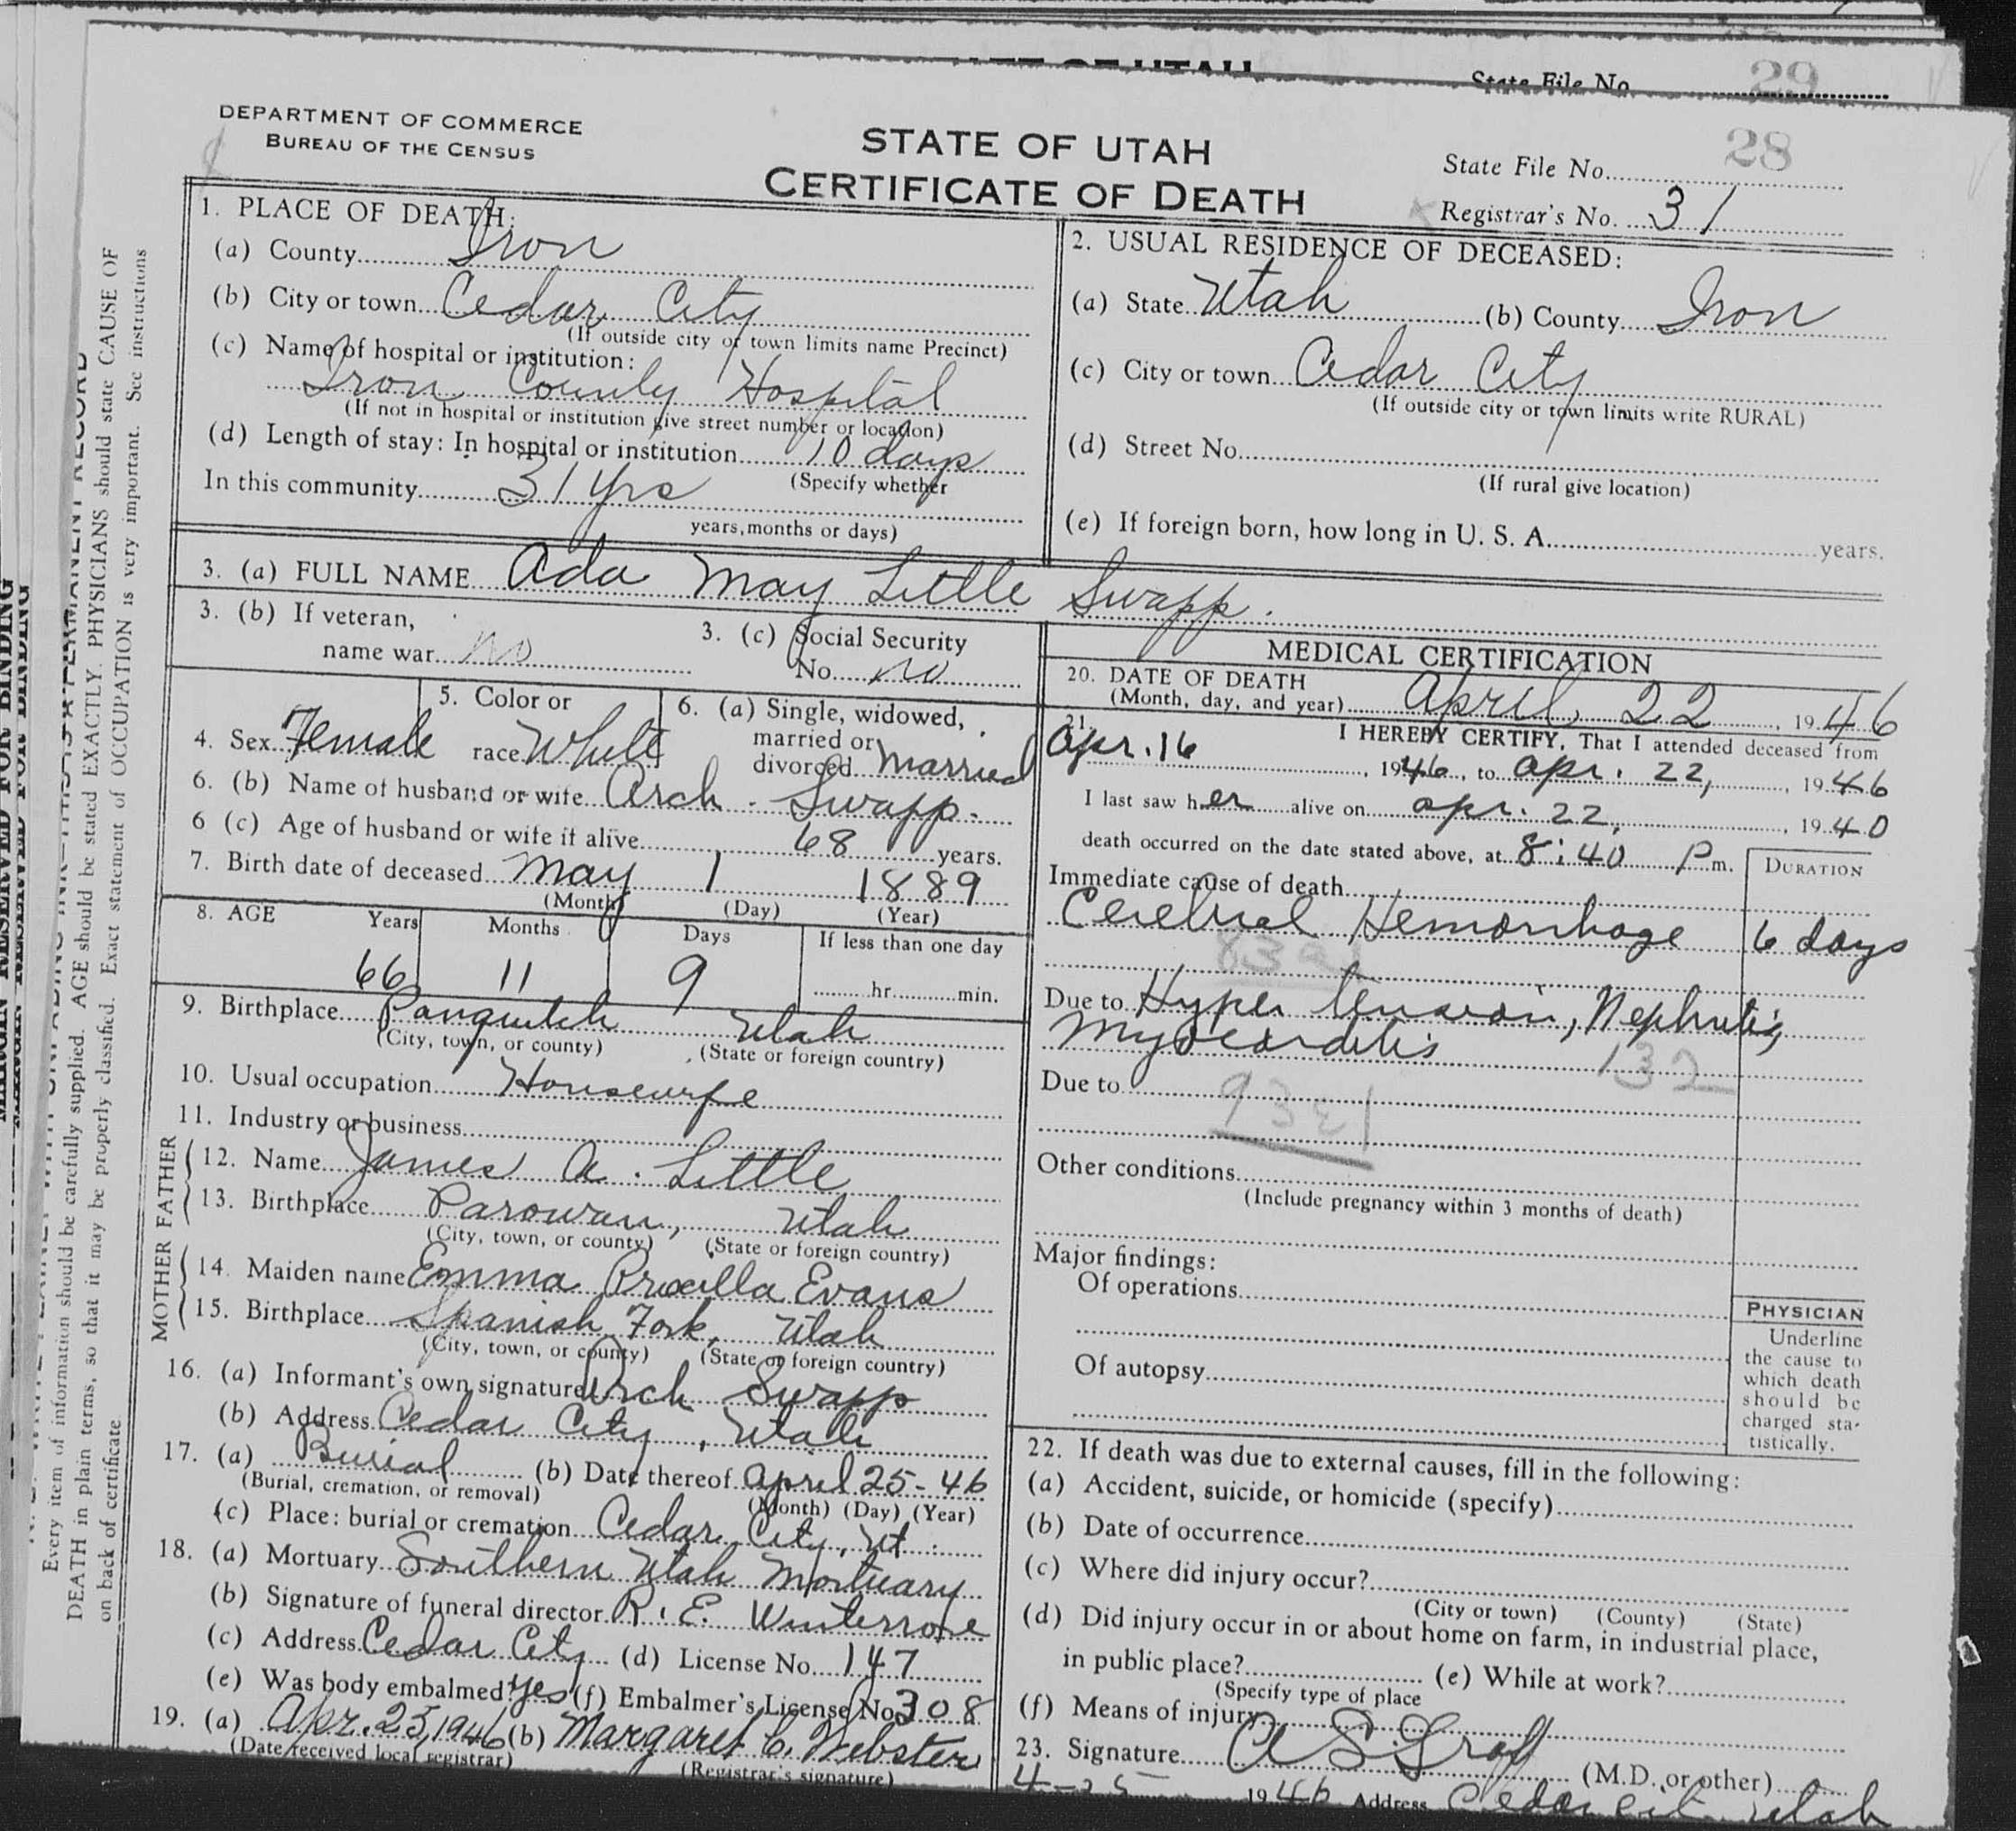 State File No. 29
DEPARTMENT OF COMMERCE
BUREAU OF THE CENSUS
STATE OF UTAH
CERTIFICATE OF DEATH
State File No. 28
Registrar's No. 31
1. PLACE OF DEATH:
(a) County Iron
(b) City or town Cedar City
(If outside city or town limits name Precinct)
(c) Name of hospital or institution:
Iron County Hospital
(If not in hospital or institution give street number or location)
(d) Length of stay: In hospital or institution 10 days
(Specify whether
In this community 31 yrs
years, months or days)
2. USUAL RESIDENCE OF DECEASED:
(a) State Utah (b) County Iron
(c) City or town Cedar City
(If outside city or town limits write RURAL)
(d) Street No.
(If rural give location)
(e) If foreign born, how long in U. S. A. years.
3. (a) FULL NAME Ada May Little Swapp.
3. (b) If veteran,
name war no
3. (c) Social Security
No. no
4. Sex Female
5. Color or
race White
6. (a) Single, widowed,
married or
divorced Married
6. (b) Name of husband or wife Arch Swapp.
6 (c) Age of husband or wife if alive 68 years.
7. Birth date of deceased May 1 1889
(Month) (Day) (Year)
8. AGE Years Months Days If less than one day
66 11 9 hr. min.
9. Birthplace Panguitch Utah
(City, town, or county) (State or foreign country)
10. Usual occupation Housewife
11. Industry or business
FATHER
12. Name James A. Little
13. Birthplace Parowan, Utah
(City, town, or county) (State or foreign country)
MOTHER
14. Maiden name Emma Priscilla Evans
15. Birthplace Spanish Fork, Utah
(City, town, or county) (State or foreign country)
16. (a) Informant's own signature Arch Swapp
(b) Address Cedar City, Utah
17. (a) Burial (b) Date thereof April 25-46
(Burial, cremation, or removal) (Month) (Day) (Year)
(c) Place: burial or cremation Cedar City, Ut.
18. (a) Mortuary Southern Utah Mortuary
(b) Signature of funeral director R. E. Winterrose
(c) Address Cedar City (d) License No. 147
(e) Was body embalmed? Yes (f) Embalmer's License No. 308
19. (a) Apr. 25, 1946 (b) Margaret C. Webster
(Date received local registrar) (Registrar's signature)
MEDICAL CERTIFICATION
20. DATE OF DEATH
(Month, day, and year) April 22, 1946
21. I HEREBY CERTIFY, That I attended deceased from
Apr. 16, 1946, to Apr. 22, 1946
I last saw her alive on Apr. 22, 1940
death occurred on the date stated above, at 8:40 P m.
DURATION
Immediate cause of death
Cerebral Hemorrhage 6 days
83a
Due to Hyper tension, Nephritis,
Myocarditis 132
Due to
Other conditions
(Include pregnancy within 3 months of death)
Major findings:
Of operations
Of autopsy
PHYSICIAN
Underline
the cause to
which death
should be
charged sta-
tistically.
22. If death was due to external causes, fill in the following:
(a) Accident, suicide, or homicide (specify)
(b) Date of occurrence
(c) Where did injury occur?
(City or town) (County) (State)
(d) Did injury occur in or about home on farm, in industrial place,
in public place? (e) While at work?
(Specify type of place
(f) Means of injury
23. Signature A S Graff (M.D. or other)
4-25 1946 Address Cedar City Utah
MARGIN RESERVED FOR BINDING
Every item of information should be carefully supplied. AGE should be stated EXACTLY. PHYSICIANS should state CAUSE OF
DEATH in plain terms, so that it may be properly classified. Exact statement of OCCUPATION is very important. See instructions
on back of certificate.